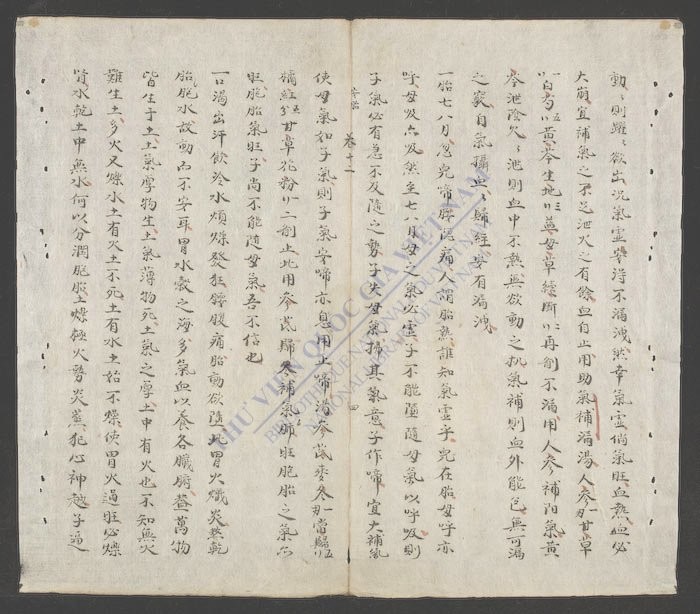 動、則躍、欲出況氣虛安得不漏洩然幸氣虛倘氣旺血熱血必
大崩宜補氣之不足泄火之有餘血自止用助氣補漏湯人參一甘草
白芍五黃芩生地三益母草續斷一再剤不漏用人參補陽氣黃
芩泄陰火、泄則血中不熱無欲動之机氣補則血外能包無可漏
之竅自氣攝血、歸經安有漏洩
一胎七八月忽兒啼腰隱痛人謂胎熱誰知氣虛乎兒在胎母呼亦
呼母吸亦吸然至七八月母之氣必虛子不能隨母氣以呼吸則
子氣必有急不及隨之勢子失母氣拂其氣意子作啼宜大補氣
使母氣和子氣則子氣安啼亦息用止啼湯參芪麥冬一當歸五
橘紅五甘草花粉二剤止此用參芪歸冬補氣肺旺胞胎之氣亦
旺胞胎氣旺子尚不能隨母氣吾不信也
一口渴出汗飲冷水煩燥發狂腰腹痛胎動欲隨此胃火熾炎熬乾
胎胞水故動而不安耳胃水穀之海多氣血以養各臟腑蓋萬物
皆生于土土氣厚物生土氣薄物死土氣之厚土中有火也不知無火
難生土多火又爍水土有火土不死土有水土始不燥使胃火過旺必爍
腎水乾土中無水何以分潤胞胎土燥極火勢炎蒸犯心神越子逼
卷十二
四
THƯ VIỆN QUỐC GIA VIỆT NAM
BIBLIOTHÈQUE NATIONALE DU VIETNAM
NATIONAL LIBRARY OF VIETNAM